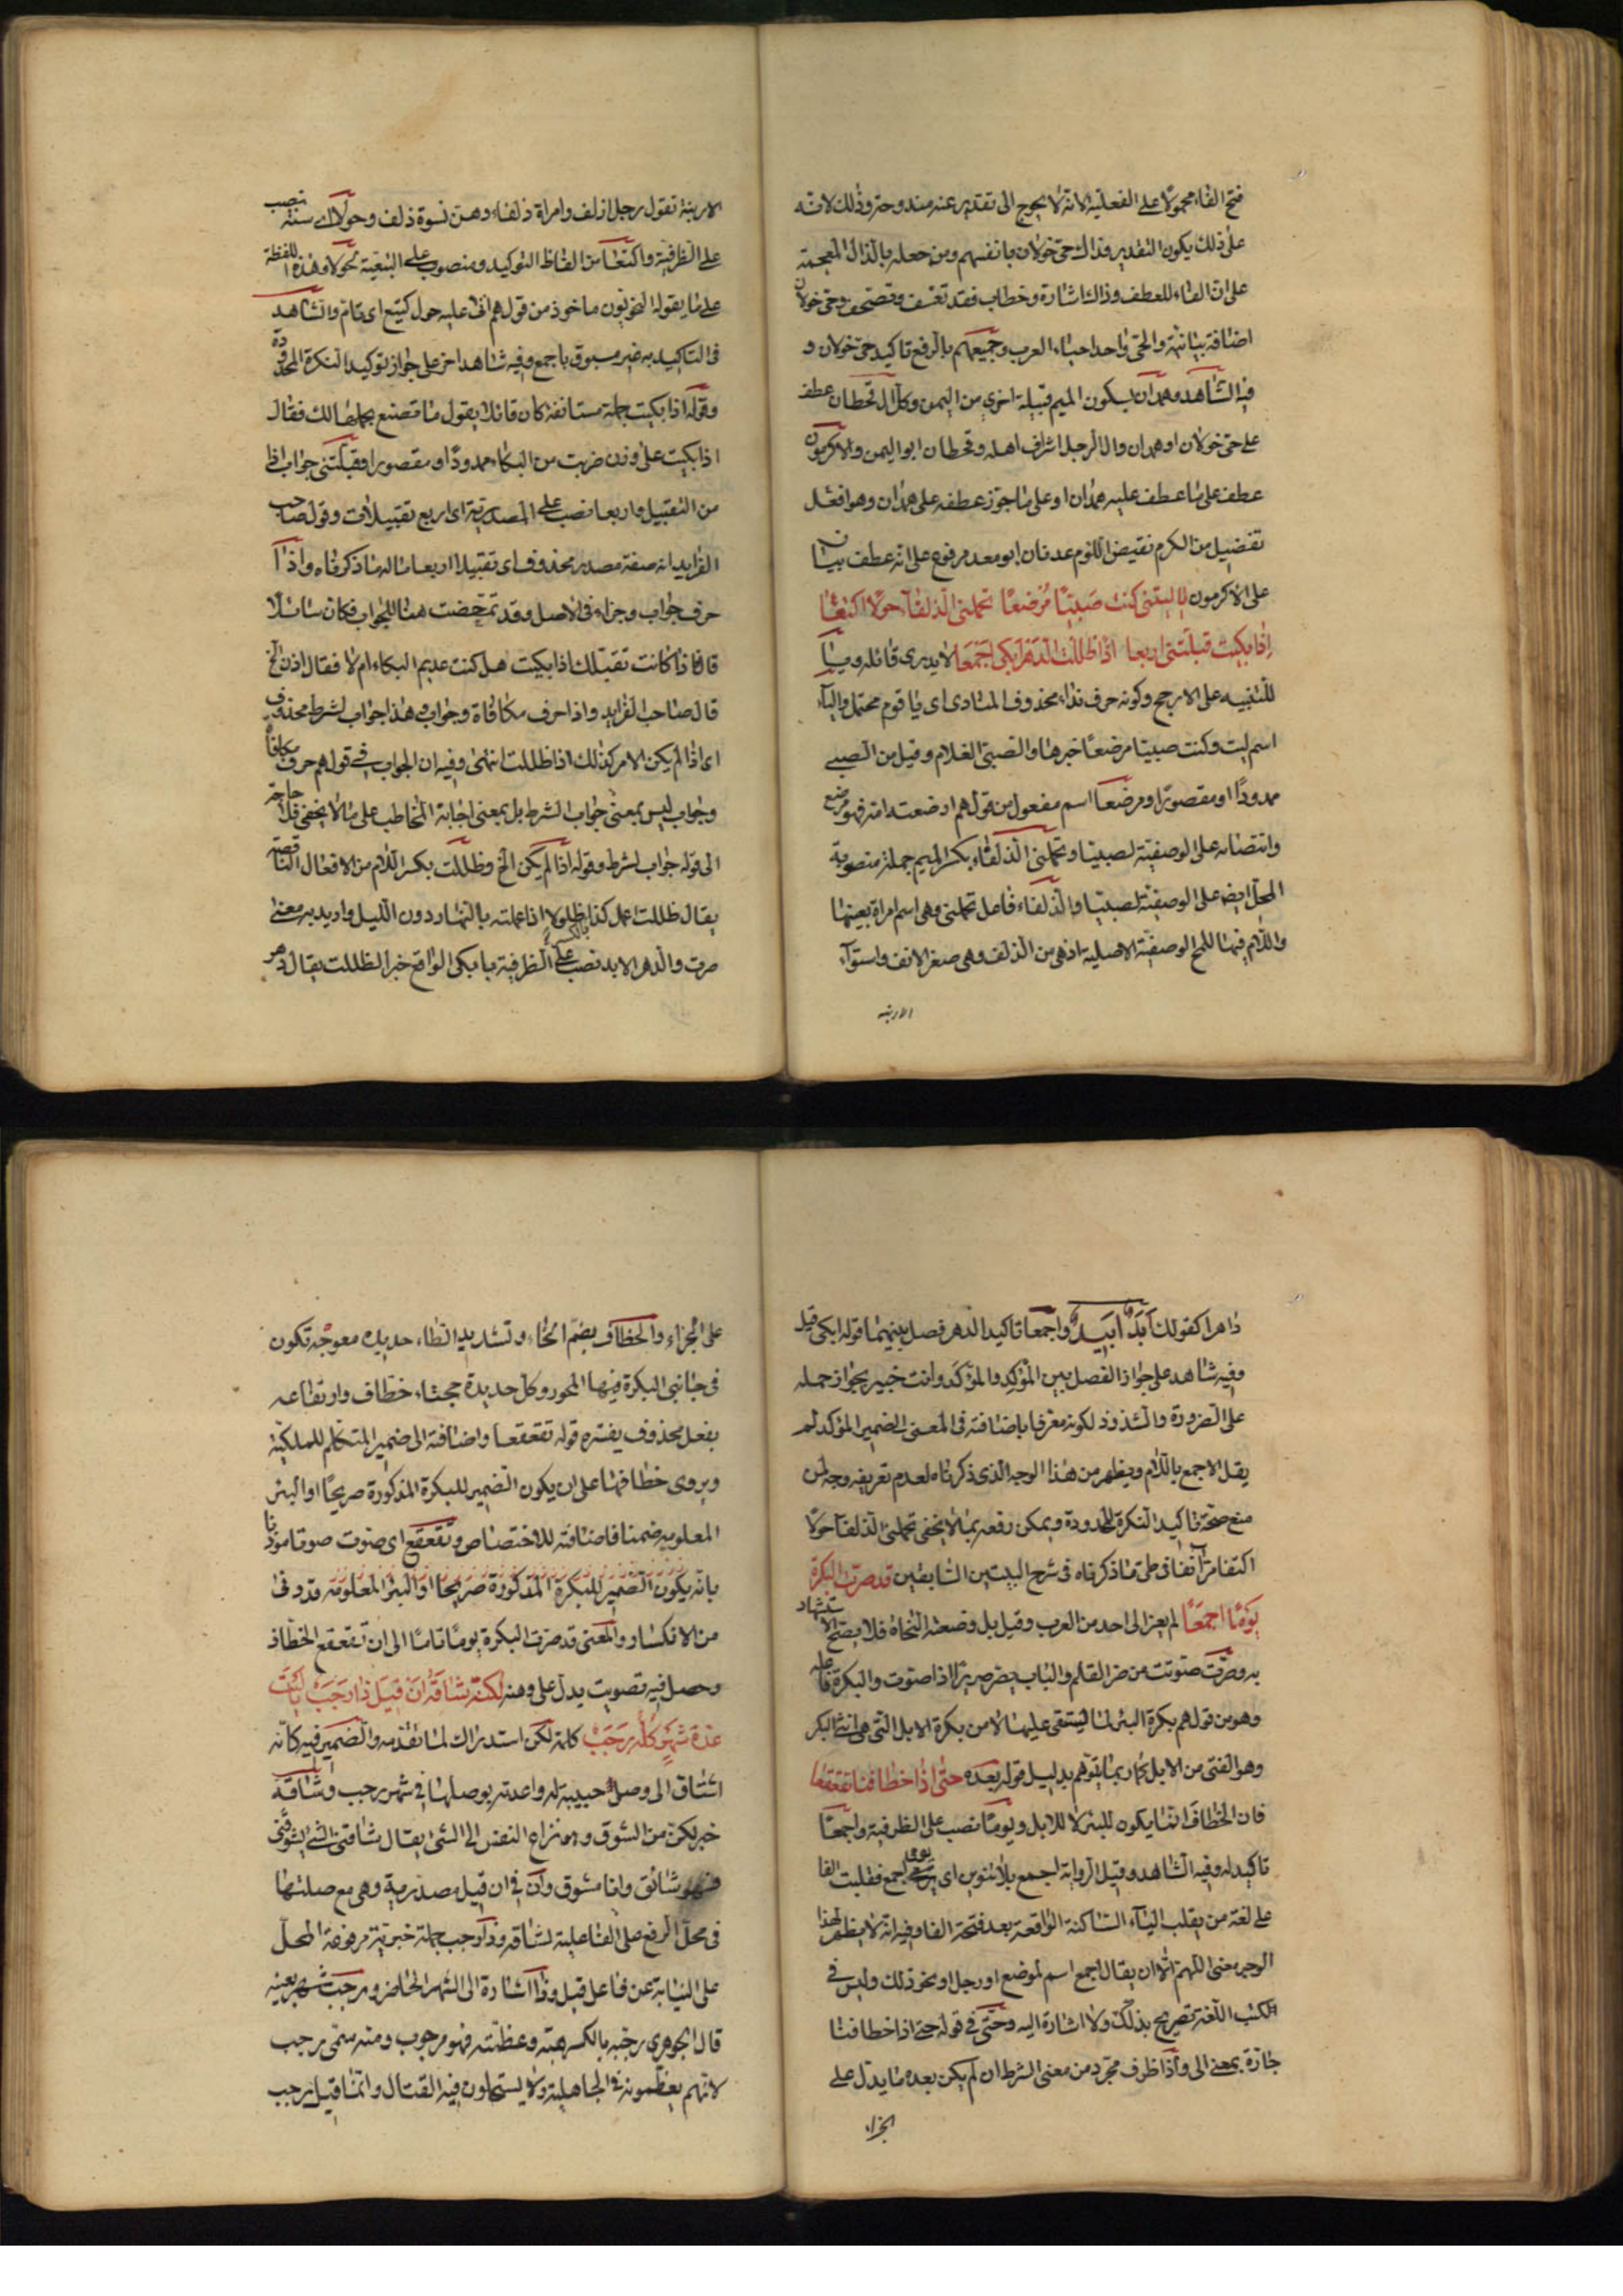 فتح الفاء محمولا على الفعلية لانه لا يحوج الى تقدير عنه مندوحة وذلك لانه
على ذلك يكون التقدير فداك حى خولان بانفسهم ومن جعله بالذال المعجمة
على ان الفاء للعطف وذاك اشارة وخطاب فقد تعسف وتصحف وحى خولان
اضافة بيانية والحى واحد احياء العرب وجميعهم بالرفع تاكيد حى خولان و
فيه الشاهد وهمدان بسكون الميم قبيلة اخرى من اليمن وكل ال قحطان عطف
على حى خولان او همدان وال الرجل اشراف اهله وقحطان ابو اليمن والاكرمون
عطف على ما عطف عليه همدان او على ما جوز عطفه على همدان وهو افعل
تفضيل من الكرم نقيض اللوم عدنان ابو معد مرفوع على انه عطف بيان
على الاكرمون يا ليتنى كنت صَبيّا مُرضعًا تحملنى الذلفآء حولا اكتعًا
اِذا بكيت قبلتنى اربعا اذا ظللت الدهر ابكى اجمعا لا يدرى قائله ويا
للتنبيه على الارجح وكونه حرف نداء محذوف المنادى اى يا قوم محتمل والياء
اسم ليت وكنت صبيا مرضعا خبرها والصبى الغلام وقيل من الصبى
ممدودًا او مقصورًا ومرضعا اسم مفعول من قولهم ارضعته امه فهو مرضع
وانتصابه على الوصفية لصبيا وتحملنى الذلفاء بكسر الميم جملة منصوبة
المحل ايض على الوصفية لصبيا والذلفاء فاعل تحملنى وهى اسم امراة بعينها
واللام فيها للمح الوصفية الاصلية اذ هى من الذلف وهى صغر الانف واستوآء
الارنبه
الارنبة تقول رجل اذلف وامراة ذلفاء وهن نسوة ذلف وحولا اى سنة نصب
على الظرفية واكتعا من الفاظ التوكيد ومنصوب على التبعية لحولا وهذه اللفظة
على ما يقوله النحويون ماخوذ من قولهم اتى عليه حول كتيع اى تام والشاهد
فى التاكيد به غير مسبوق باجمع وفيه شاهد اخر على جواز توكيد النكرة المحدودة
وقوله اذا بكيت جملة مستانفة كان قائلا يقول ما تصنع بحملها لك فقال
اذا بكيت على وزن ضربت من البكاء ممدودًا او مقصورا وقبلتنى جواب اذا
من التقبيل واربعا نصب على المصدرية اى اربع تقبيلات وقول صاحب
الفرايد انه صفة مصدر محذوف اى تقبيلا اربعا ماله ما ذكرناه واذًا
حرف جواب وجزاء فى الاصل وقد تمحضت هنا للجواب فكان سائلا
قال فاذا كانت تقبلك اذا بكيت هل كنت عديم البكاء ام لا فقال اذن الخ
قال صاحب الفرايد واذا حرف مكافاة وجواب وهذا جواب لشرط محذوف
اى اذا لم يكن الامر كذلك اذا ظللت انتهى وفيه ان الجواب فى قولهم حرف مكافاة
وجواب ليس بمعنى جواب الشرط بل بمعنى اجابة المخاطب على ما لا يخفى فلا حاجة
الى قوله جواب لشرط وقوله اذا لم يكن الخ وظللت بكسر اللام من الافعال الناقصة
يقال ظللت اعمل كذا بالكسر ظلولا اذا عملته بالنهار دون الليل واريد به معنى
صرت والدهر الابد نصب على الظرفية بابكى الواقع خبرا لظللت يقال دهر
داهر كقولك اَبَدٌ اَبيدٌ واجمعا تاكيد الدهر فصل بينهما قوله ابكى قيل
وفيه شاهد على جواز الفصل بين المؤكِد والمؤكَد وانت خبير بجواز حمله
على الضرورة والشذوذ لكونه معرفا باضافته فى المعنى الى ضمير المؤكد لم
يقل الاجمع باللام ويظهر من هذا الوجه الذى ذكرناه لعدم تعريفه وجه لمن
منع صحة تاكيد النكرة المحدودة ويمكن رفعه بما لا يخفى تحملنى الذلفآ حولا
اكتعا مر آنفا فى طى ما ذكرناه فى شرح البيتين السابقين قد صرت البكرة
يَومًا اجمعًا لم يعز الى احد من العرب وقيل بل وضعته النحاة فلا يصح الاستشهاد
به وصرّت صوتت من صر القلم والباب يصر صريرًا اذا صوت والبكرة فاعله
وهو من قولهم بكرة البئر لما يستقى عليها لا من بكرة الابل التى هى انثى البكر
وهو الفتى من الابل كما ربما يتوهم بدليل قوله بعده حتى اذا خطافنا تقعقعا
فان الخطاف انما يكون للبئر لا للابل ويومًا نصب على الظرفية واجمعًا
تاكيد له وفيه الشاهد وقيل الرواية اجمع بلا تنوين اى يومى اجمع فقلبت الفا
على لغة من يقلب الياء الساكنة الواقعة بعد فتحة الفا وفيه انه لا يظهر لهذا
الوجه معنى اللهم الا ان يقال اجمع اسم لموضع او رجل او نحو ذلك وليس فى
الكتب اللغة تصريح بذلك ولا اشارة اليه وحتى فى قوله حتى اذا خطافنا
جارة بمعنى الى واذا ظرف مجرد من معنى الشرط ان لم يكن بعده ما يدل على
الجزاء
على الجزاء والخطاف بضم الخاء وتشديد الطاء حديدة معوجة تكون
فى جانبى البكرة فيها المحور وكل حديدة حجناء خطاف وارتفاعه
بفعل محذوف يفسره قوله تقعقعا واضافته الى ضمير المتكلم للملكية
ويروى خطافها على ان يكون الضمير للبكرة المذكورة صريحًا او البئر
المعلومة ضمنا فاضافته للاختصاص وتقعقع اى صوت صوتا موذنا
بانه يكون الضمير للبكرة المذكورة صريحا او البئر المعلومة قد دنى
من الانكسار والمعنى قد صرت البكرة يوما تاما الى ان تقعقع الخطاف
وحصل فيه تصويت يدل على وهنه لكنّه شاقه اَن قيل ذا رَجَبٌ يا لَيتَ
عدةَ شهرٍ كلّه رَجَبُ كلمة لكن استدراك لما تقدمه والضمير فيه كانه
اشتاق الى وصل حبيبة له واعدته بوصلها فى شهر رجب وشاقه
خبر لكن من الشوق وهو نزاع النفس الى الشئ يقال شاقنى الشئ يشوقنى
فهو شائق وانا مشوق وان فى ان قيل مصدرية وهى مع صلتها
فى محل الرفع على الفاعلية لشاقه وذا رجب جملة خبرية مرفوعة المحل
على النيابة عن فاعل قيل وذا اشارة الى الشهر الحاضر ورجب شهر بعينه
قال الجوهرى رجبه بالكسر هبته وعظمته فهو مرجوب ومنه سمى رجب
لانهم يعظمونه فى الجاهلية ولا يستحلون فيه القتال وانما قيل رجب